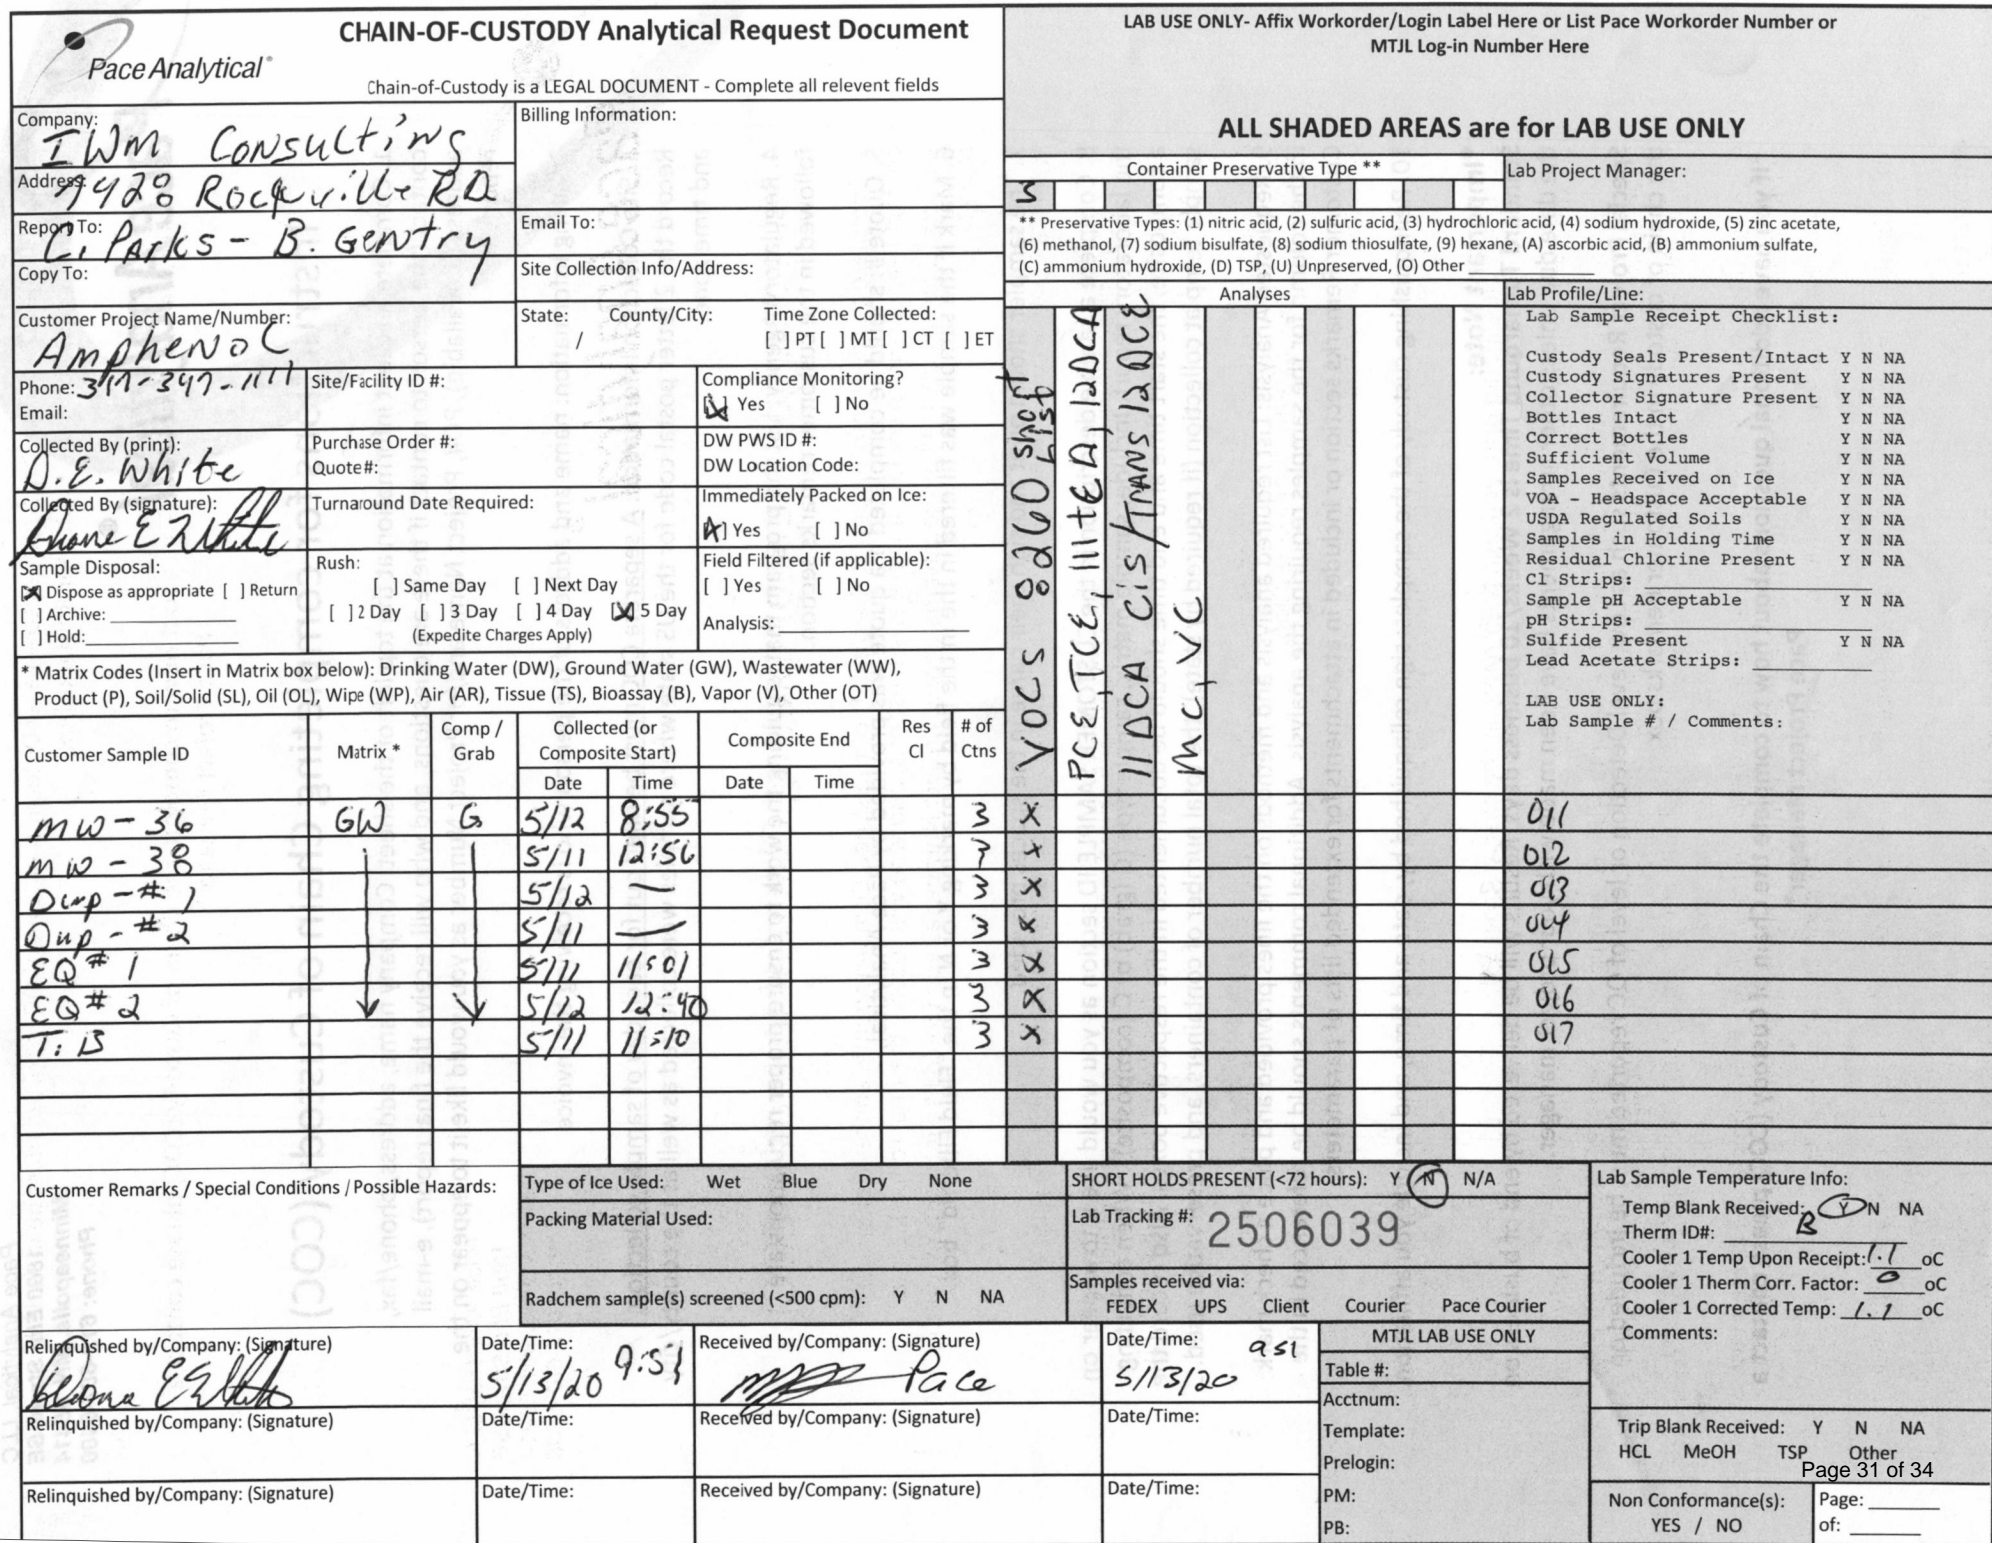 Pace Analytical
CHAIN-OF-CUSTODY Analytical Request Document
Chain-of-Custody is a LEGAL DOCUMENT - Complete all relevent fields
LAB USE ONLY- Affix Workorder/Login Label Here or List Pace Workorder Number or
MTJL Log-in Number Here
ALL SHADED AREAS are for LAB USE ONLY
Company: IWM Consulting
Billing Information:
Address: 7428 Rockville RD
Report To: C. Parks - B. Gentry
Email To:
Copy To:
Site Collection Info/Address:
Customer Project Name/Number: Amphenol
State: / County/City: Time Zone Collected:
[ ] PT [ ] MT [ ] CT [ ] ET
Phone: 317-347-1111
Email:
Site/Facility ID #:
Compliance Monitoring?
[X] Yes [ ] No
Collected By (print): D.E. White
Purchase Order #:
Quote#:
DW PWS ID #:
DW Location Code:
Collected By (signature):
Turnaround Date Required:
Immediately Packed on Ice:
[X] Yes [ ] No
Sample Disposal:
[X] Dispose as appropriate [ ] Return
[ ] Archive:
[ ] Hold:
Rush:
[ ] Same Day [ ] Next Day
[ ] 2 Day [ ] 3 Day [ ] 4 Day [X] 5 Day
(Expedite Charges Apply)
Field Filtered (if applicable):
[ ] Yes [ ] No
Analysis:
* Matrix Codes (Insert in Matrix box below): Drinking Water (DW), Ground Water (GW), Wastewater (WW),
Product (P), Soil/Solid (SL), Oil (OL), Wipe (WP), Air (AR), Tissue (TS), Bioassay (B), Vapor (V), Other (OT)
Container Preservative Type **
3
Lab Project Manager:
** Preservative Types: (1) nitric acid, (2) sulfuric acid, (3) hydrochloric acid, (4) sodium hydroxide, (5) zinc acetate,
(6) methanol, (7) sodium bisulfate, (8) sodium thiosulfate, (9) hexane, (A) ascorbic acid, (B) ammonium sulfate,
(C) ammonium hydroxide, (D) TSP, (U) Unpreserved, (O) Other
Analyses
VOCS 8260 short List
PCE, TCE, 111tEA, 12DCA
11 DCA Cis/TRANS 12DCE
MC, VC
Lab Profile/Line:
Lab Sample Receipt Checklist:
Custody Seals Present/Intact Y N NA
Custody Signatures Present Y N NA
Collector Signature Present Y N NA
Bottles Intact Y N NA
Correct Bottles Y N NA
Sufficient Volume Y N NA
Samples Received on Ice Y N NA
VOA - Headspace Acceptable Y N NA
USDA Regulated Soils Y N NA
Samples in Holding Time Y N NA
Residual Chlorine Present Y N NA
Cl Strips:
Sample pH Acceptable Y N NA
pH Strips:
Sulfide Present Y N NA
Lead Acetate Strips:
LAB USE ONLY:
Lab Sample # / Comments:
Customer Sample ID Matrix * Comp / Grab Collected (or Composite Start) Composite End Res Cl # of Ctns
Date Time Date Time
MW-36 GW G 5/12 8:55 3 X 011
MW-38 5/11 12:56 3 X 012
Dup-#1 5/12 — 3 X 013
Dup-#2 5/11 — 3 X 014
EQ#1 5/11 11:01 3 X 015
EQ#2 5/12 12:40 3 X 016
T.B 5/11 11:10 3 X 017
Customer Remarks / Special Conditions / Possible Hazards:
Type of Ice Used: Wet Blue Dry None
Packing Material Used:
Radchem sample(s) screened (<500 cpm): Y N NA
SHORT HOLDS PRESENT (<72 hours): Y N N/A
Lab Tracking #: 2506039
Samples received via:
FEDEX UPS Client Courier Pace Courier
Lab Sample Temperature Info:
Temp Blank Received: Y N NA
Therm ID#: B
Cooler 1 Temp Upon Receipt: 1.1 oC
Cooler 1 Therm Corr. Factor: 0 oC
Cooler 1 Corrected Temp: 1.1 oC
Comments:
Relinquished by/Company: (Signature)
Date/Time: 5/13/20 9:51
Received by/Company: (Signature) Pace
Date/Time: 5/13/20 951
MTJL LAB USE ONLY
Table #:
Acctnum:
Template:
Prelogin:
PM:
PB:
Relinquished by/Company: (Signature)
Date/Time:
Received by/Company: (Signature)
Date/Time:
Trip Blank Received: Y N NA
HCL MeOH TSP Other
Page 31 of 34
Relinquished by/Company: (Signature)
Date/Time:
Received by/Company: (Signature)
Date/Time:
Non Conformance(s):
YES / NO
Page:
of: